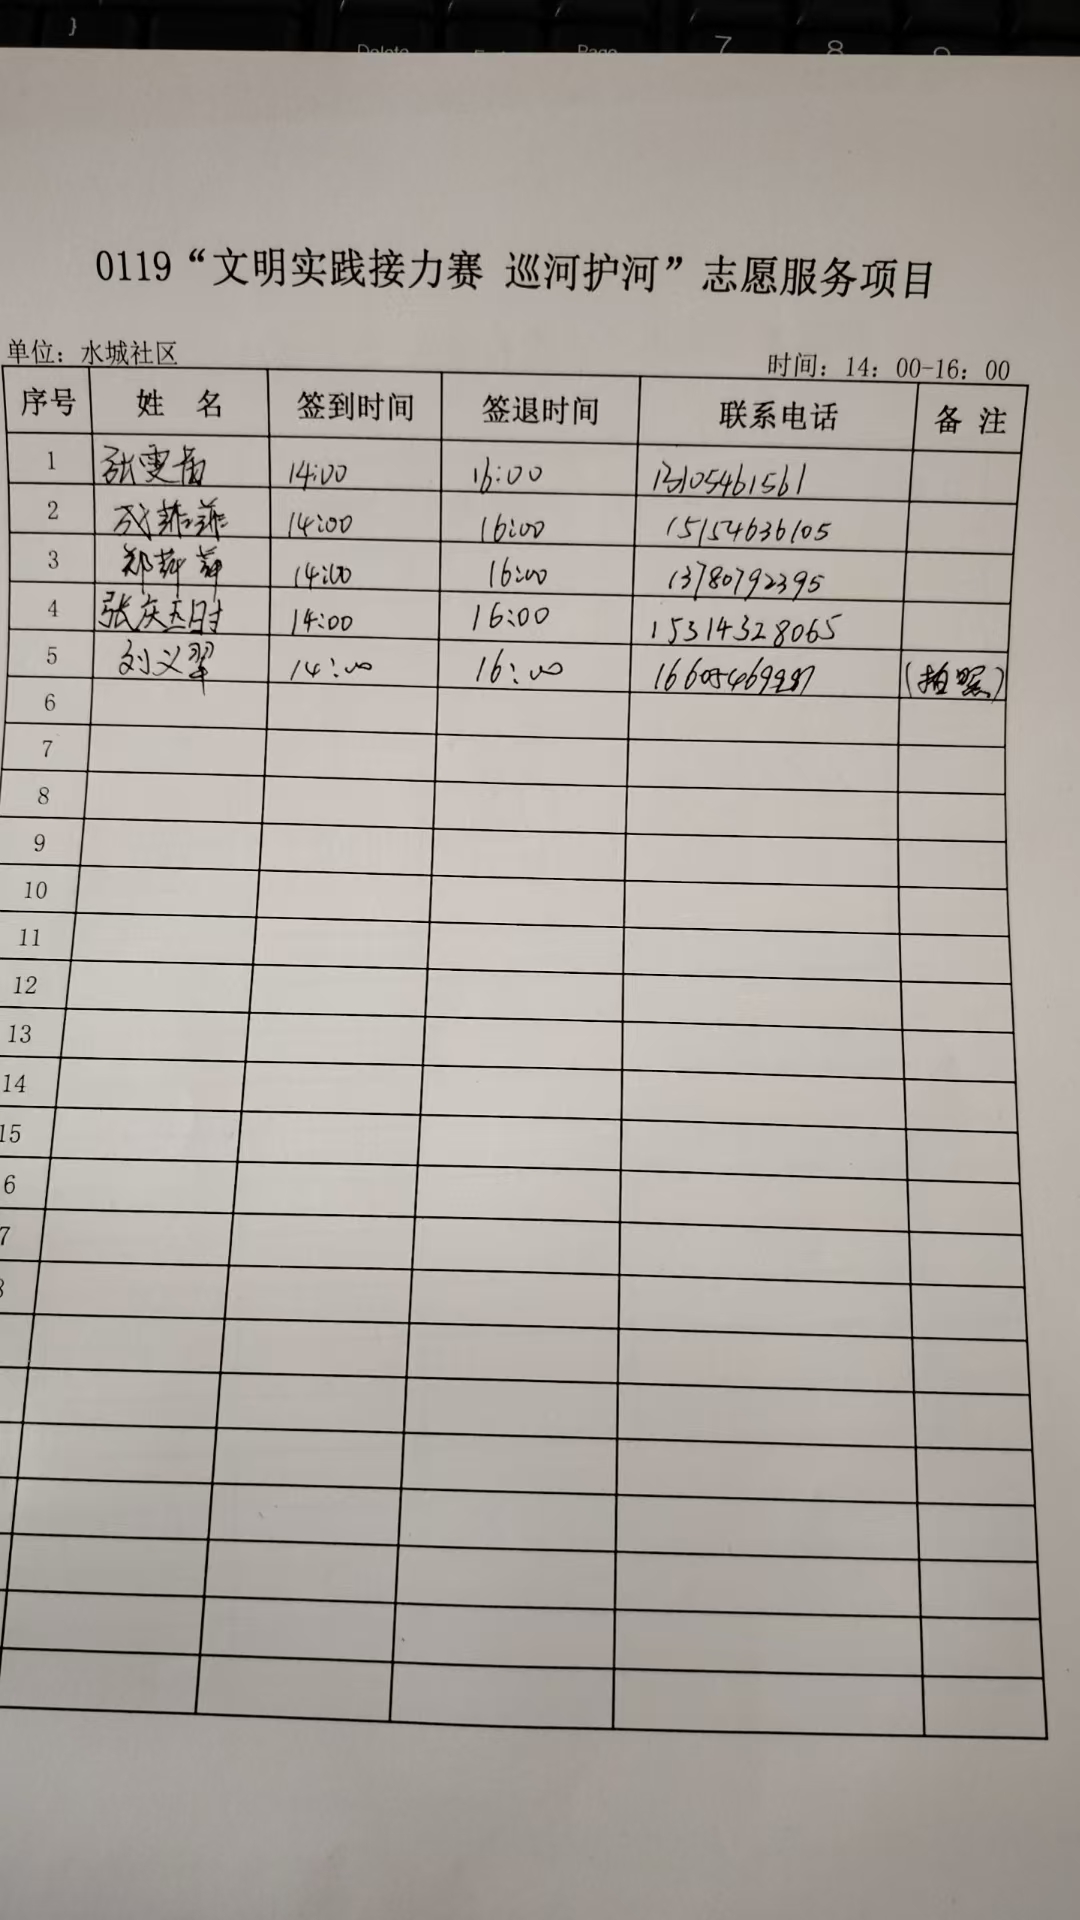 }
Delete
Page
7
8
9
0119“文明实践接力赛 巡河护河”志愿服务项目
单位：水城社区 时间：14：00-16：00
序号 姓 名 签到时间 签退时间 联系电话 备 注
1 张雯 14:00 16:00 13105461561
2 成菲菲 14:00 16:00 15154636105
3 郑 14:00 16:00 13780792395
4 张庆 14:00 16:00 15314328065
5 刘义翠 14:00 16:00 (拍照)
6
7
8
9
10
11
12
13
14
15
6
7
8